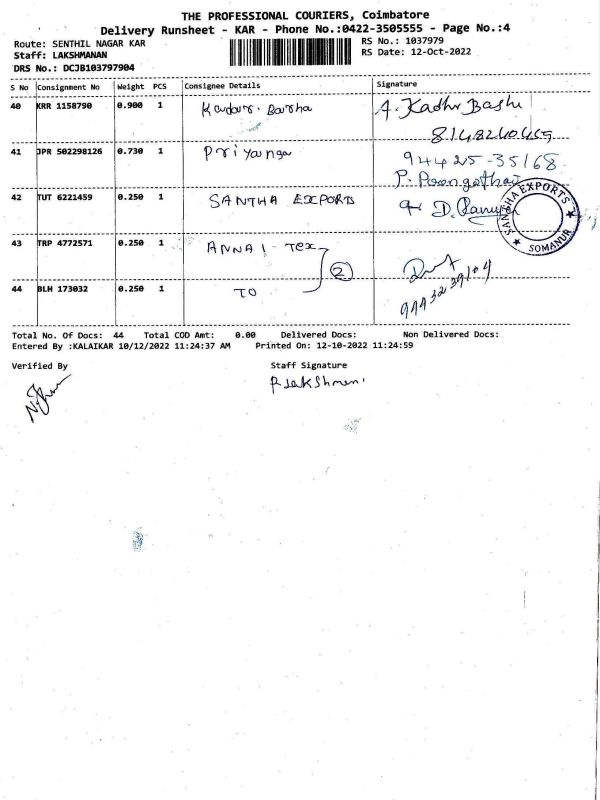 THE PROFESSIONAL COURIERS, Coimbatore
Delivery Runsheet - KAR - Phone No.:0422-3505555 - Page No.:4
Route: SENTHIL NAGAR KAR
RS No.: 1037979
Staff: LAKSHMANAN
RS Date: 12-Oct-2022
DRS No.: DCJB103797904
S No Consignment No Weight PCS Consignee Details Signature
40 KRR 1158790 0.900 1 Kadar. Basha A. Kadhr Bashi
8148240459
41 JPR 502298126 0.730 1 Priyanga 94425-35168
P. Poongothai
42 TUT 6221459 0.250 1 SANTHA EXPORTS D.
SANTHA EXPORTS
SOMANUR
43 TRP 4772571 0.250 1 ANNAI - Tex
2
44 BLH 173032 0.250 1 TO
Total No. Of Docs: 44 Total COD Amt: 0.00 Delivered Docs: Non Delivered Docs:
Entered By :KALAIKAR 10/12/2022 11:24:37 AM Printed On: 12-10-2022 11:24:59
Verified By Staff Signature
P Lakshmani